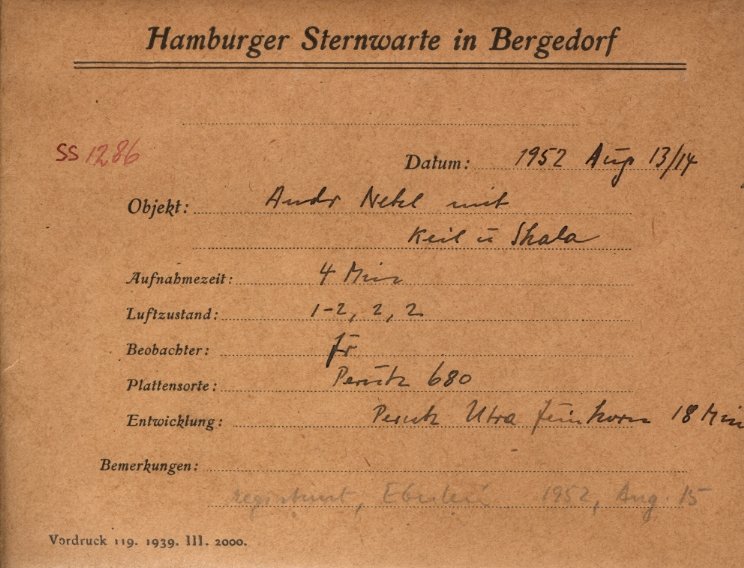 Hamburger Sternwarte in Bergedorf
SS 1286
Datum: 1952 Aug 13/14
Objekt: Andr Nebel mit
Keil u Skala
Aufnahmezeit: 4 Min
Luftzustand: 1-2, 2, 2
Beobachter: Fr
Plattensorte: Perutz 680
Entwicklung: Perutz Utra feinkorn 18 Min
Bemerkungen:
registriert, 1952, Aug. 15
Vordruck 119. 1939. III. 2000.